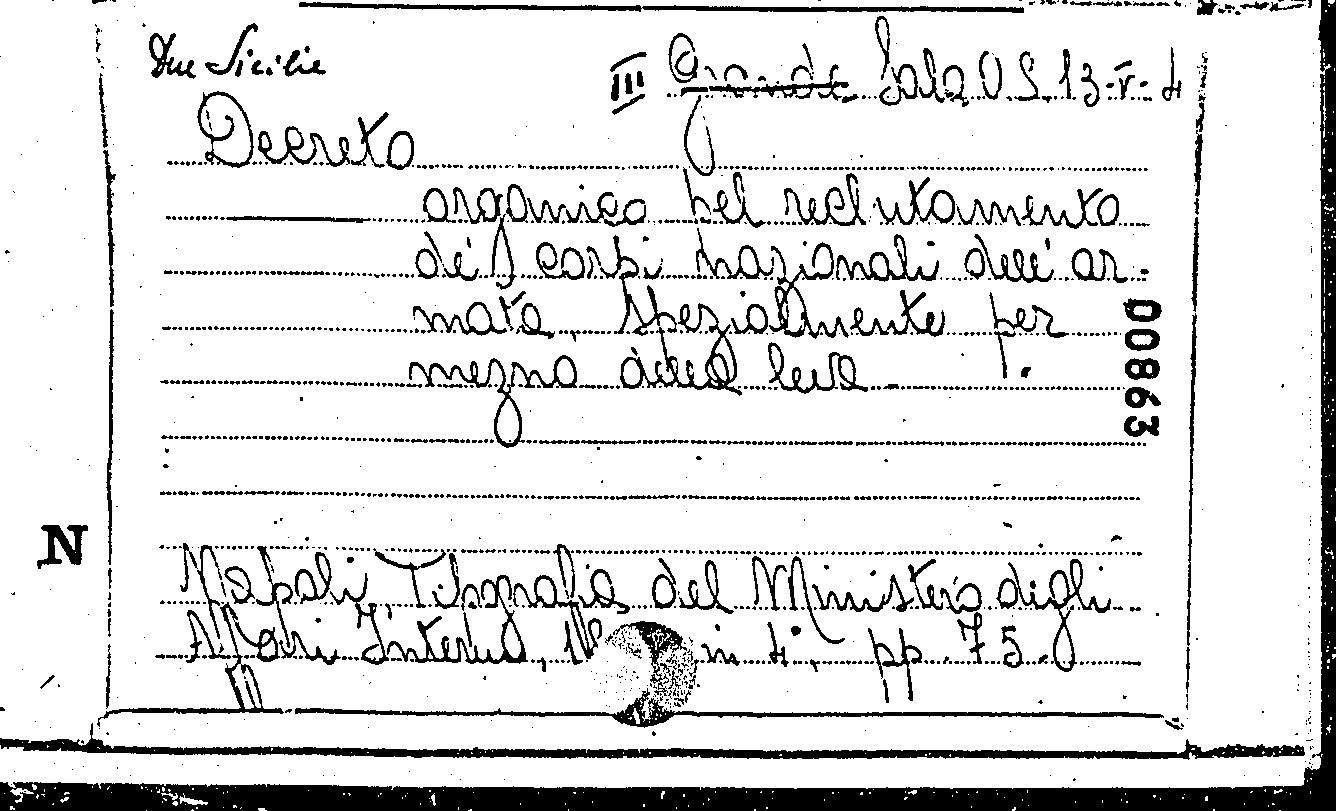 Due Sicilie
III Grande Sala O S. 13-V-4
Decreto
organico pel reclutamento
de' corpi nazionali dell' ar-
mata, spezialmente per
mezzo della leva.
00863
N
Napoli, Tipografia del Ministero degli
Affari Interni, in 4, pp. 75.